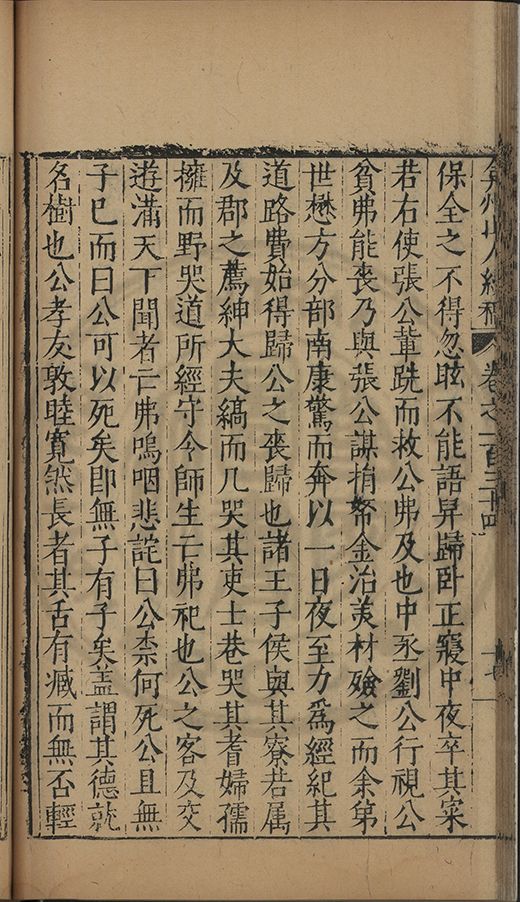 弇州山人續稿 卷之一百三十四 十七
保全之不得忽眩不能語舁歸卧正寢中夜卒其寀
若右使張公輩跣而救公弗及也中丞劉公行視公
貧弗能喪乃與張公謀捐帑金治美材殮之而余弟
世懋方分部南康驚而奔以一日夜至力爲經紀其
道路費始得歸公之喪歸也諸王子侯與其寮若属
及郡之薦紳大夫縞而几哭其吏士巷哭其耆婦孺
擁而野哭道所經守令師生亡弗祀也公之客及交
遊滿天下聞者亡弗嗚咽悲詫曰公柰何死公且無
子已而曰公可以死矣即無子有子矣盖謂其德就
名樹也公孝友敦睦寬然長者其舌有臧而無否輕